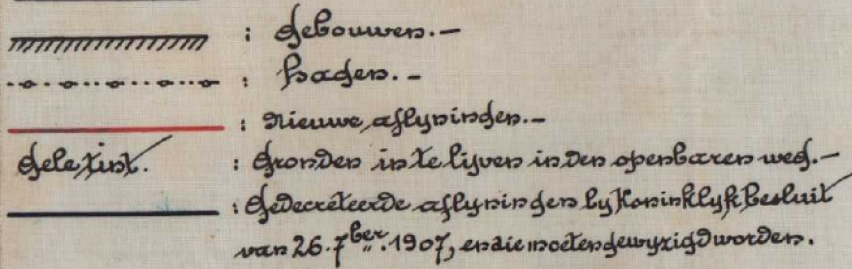 : Gebouwen.—
: Hagen.—
: Nieuwe aflyningen.—
Gele tint. : Gronden in te lijven in den openbaren weg.—
: Gedecreteerde aflyningen by Koninklyk Besluit
van 26. 7ber. 1907, en die moeten gewyzigd worden.